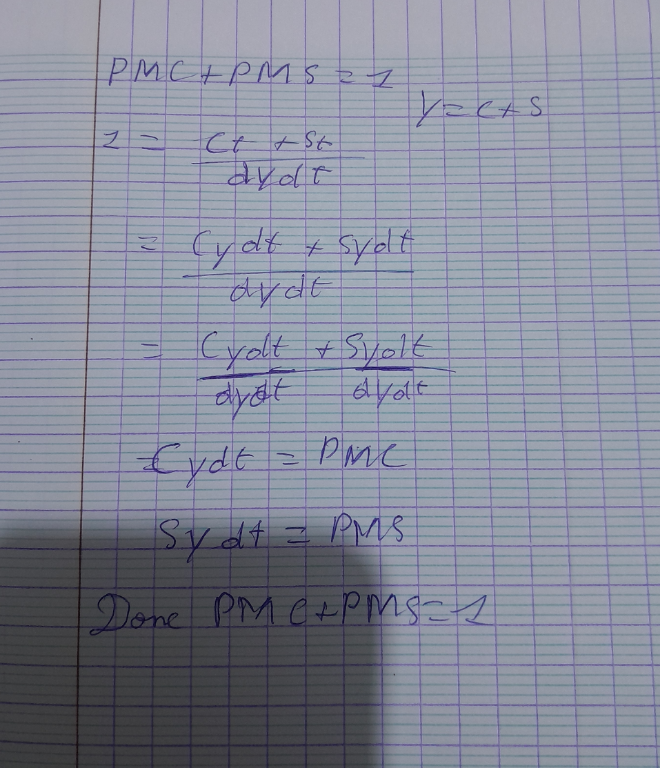 PMC+PMS=1
Y=C+S
1 = Ct + St
dydt
= Cydt + Sydt
dydt
= Cydt + Sydt
dydt dydt
=Cydt = PMC
Sydt = PMS
Donc PMC+PMS=1